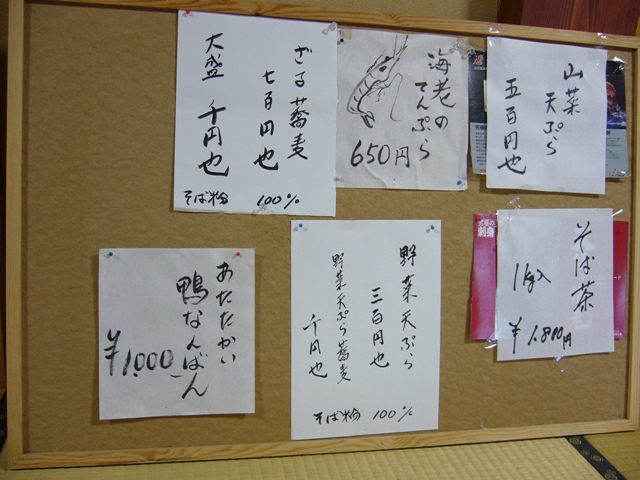 ざる蕎麦
七百円也
大盛 千円也
そば粉 100%
海老の
てんぷら
650円
山菜
天ぷら
五百円也
あたたかい
鴨なんばん
¥1,000
野菜天ぷら
三百円也
野菜天ぷら蕎麦
千円也
そば粉 100%
そば茶
¥1,800円
刺身